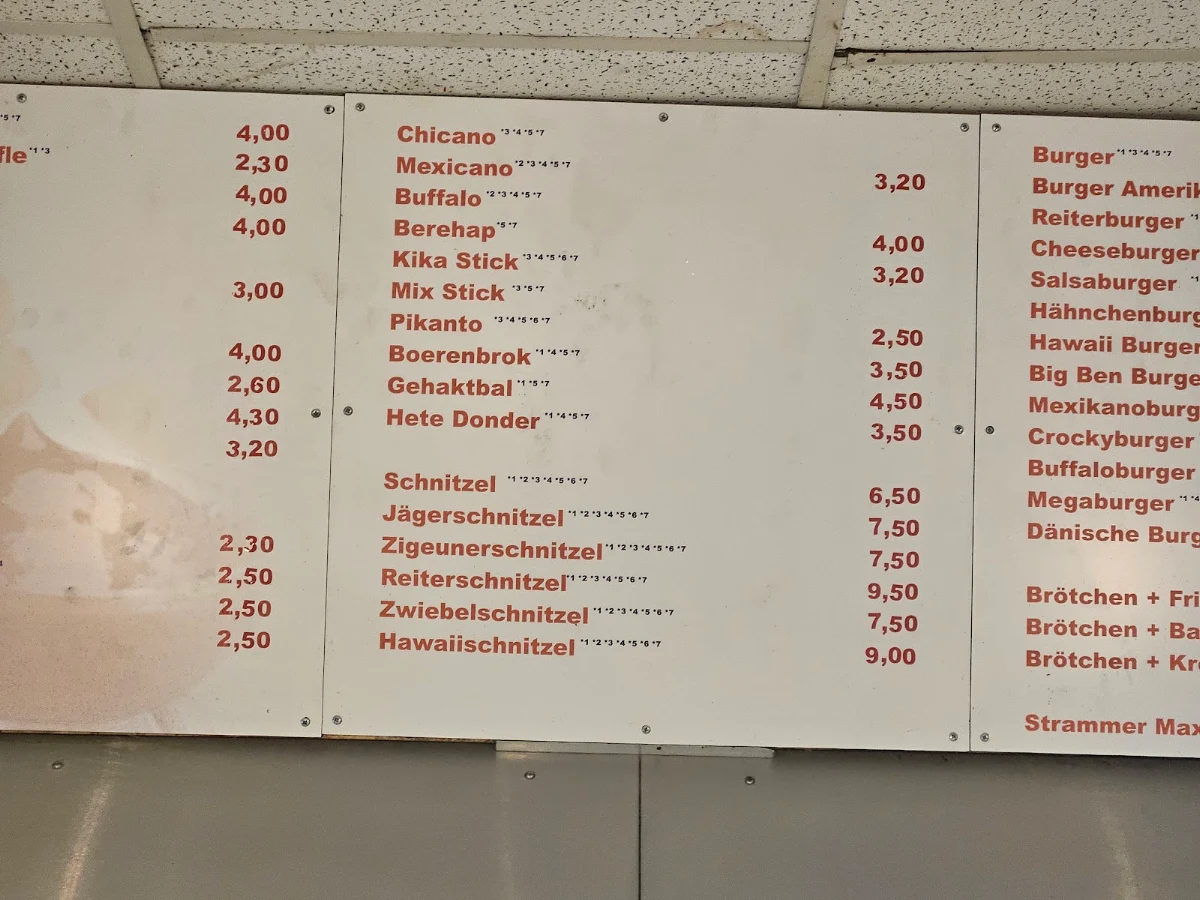 *5 *7 4,00
fle *1 *3 2,30
4,00
4,00
3,00
4,00
2,60
4,30
3,20
2,30
2,50
2,50
2,50
Chicano *3 *4 *5 *7
Mexicano *2 *3 *4 *5 *7 3,20
Buffalo *2 *3 *4 *5 *7
Berehap *5 *7 4,00
Kika Stick *3 *4 *5 *6 *7 3,20
Mix Stick *3 *5 *7
Pikanto *3 *4 *5 *6 *7 2,50
Boerenbrok *1 *4 *5 *7 3,50
Gehaktbal *1 *5 *7 4,50
Hete Donder *1 *4 *5 *7 3,50
Schnitzel *1 *2 *3 *4 *5 *6 *7 6,50
Jägerschnitzel *1 *2 *3 *4 *5 *6 *7 7,50
Zigeunerschnitzel *1 *2 *3 *4 *5 *6 *7 7,50
Reiterschnitzel *1 *2 *3 *4 *5 *6 *7 9,50
Zwiebelschnitzel *1 *2 *3 *4 *5 *6 *7 7,50
Hawaiischnitzel *1 *2 *3 *4 *5 *6 *7 9,00
Burger *1 *3 *4 *5 *7
Burger Amerik
Reiterburger *1
Cheeseburger
Salsaburger *1
Hähnchenburg
Hawaii Burger
Big Ben Burge
Mexikanoburg
Crockyburger
Buffaloburger
Megaburger *1 *4
Dänische Burg
Brötchen + Fri
Brötchen + Ba
Brötchen + Kr
Strammer Max